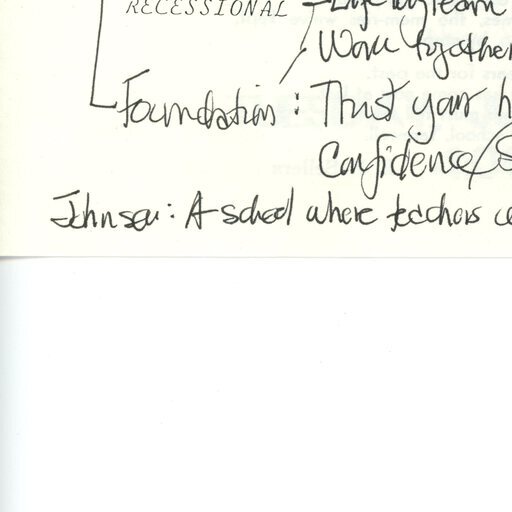 RECESSIONAL
Work together
Foundation: Trust your h
Confidence/S
Johnson: A school where teachers ce